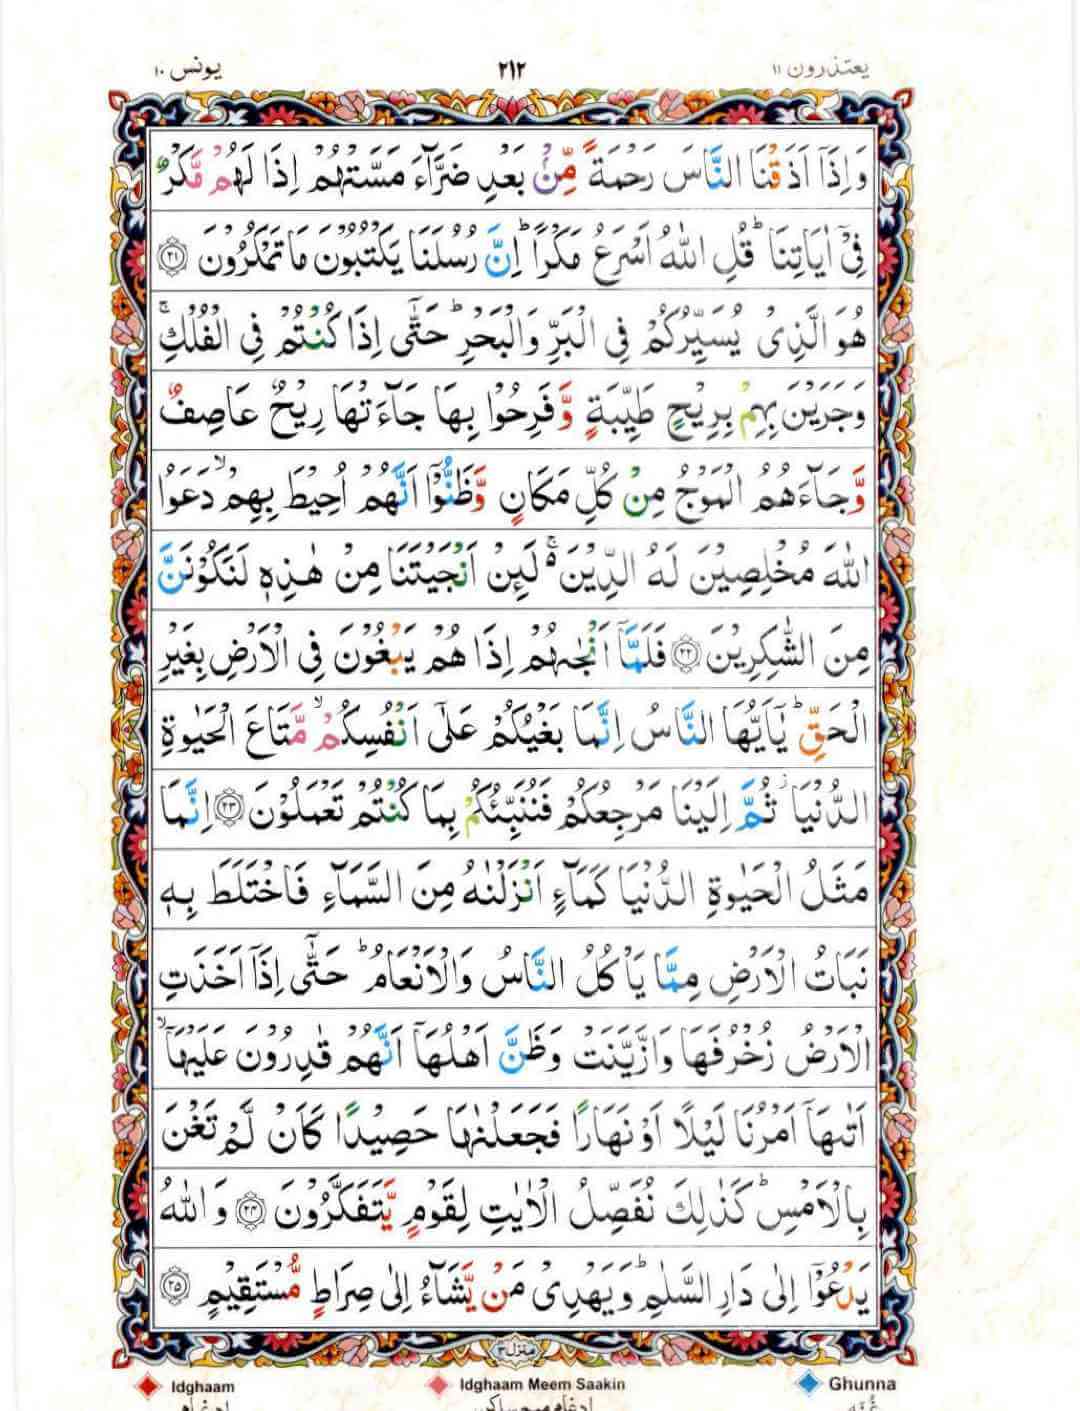 یعتذرون ۱۱ ۲۱۲ یونس ۱۰
وَاِذَاۤ اَذَقْنَا النَّاسَ رَحْمَةً مِّنْۢ بَعْدِ ضَرَّآءَ مَسَّتْهُمْ اِذَا لَهُمْ مَّكْرٌ
فِیْۤ اٰیَاتِنَا ؕ قُلِ اللّٰهُ اَسْرَعُ مَكْرًا ؕ اِنَّ رُسُلَنَا یَكْتُبُوْنَ مَا تَمْكُرُوْنَ ۲۱
هُوَ الَّذِیْ یُسَیِّرُكُمْ فِی الْبَرِّ وَالْبَحْرِ ؕ حَتّٰۤی اِذَا كُنْتُمْ فِی الْفُلْكِ ۚ
وَجَرَیْنَ بِهِمْ بِرِیْحٍ طَیِّبَةٍ وَّفَرِحُوْا بِهَا جَآءَتْهَا رِیْحٌ عَاصِفٌ
وَّجَآءَهُمُ الْمَوْجُ مِنْ كُلِّ مَكَانٍ وَّظَنُّوْۤا اَنَّهُمْ اُحِیْطَ بِهِمْ ۙ دَعَوُا
اللّٰهَ مُخْلِصِیْنَ لَهُ الدِّیْنَ ۚ۬ لَئِنْ اَنْجَیْتَنَا مِنْ هٰذِهٖ لَنَكُوْنَنَّ
مِنَ الشّٰكِرِیْنَ ۲۲ فَلَمَّاۤ اَنْجٰىهُمْ اِذَا هُمْ یَبْغُوْنَ فِی الْاَرْضِ بِغَیْرِ
الْحَقِّ ؕ یٰۤاَیُّهَا النَّاسُ اِنَّمَا بَغْیُكُمْ عَلٰۤی اَنْفُسِكُمْ ۙ مَّتَاعَ الْحَیٰوةِ
الدُّنْیَا ؗ ثُمَّ اِلَیْنَا مَرْجِعُكُمْ فَنُنَبِّئُكُمْ بِمَا كُنْتُمْ تَعْمَلُوْنَ ۲۳ اِنَّمَا
مَثَلُ الْحَیٰوةِ الدُّنْیَا كَمَآءٍ اَنْزَلْنٰهُ مِنَ السَّمَآءِ فَاخْتَلَطَ بِهٖ
نَبَاتُ الْاَرْضِ مِمَّا یَاْكُلُ النَّاسُ وَالْاَنْعَامُ ؕ حَتّٰۤی اِذَاۤ اَخَذَتِ
الْاَرْضُ زُخْرُفَهَا وَازَّیَّنَتْ وَظَنَّ اَهْلُهَاۤ اَنَّهُمْ قٰدِرُوْنَ عَلَیْهَاۤ ۙ
اَتٰىهَاۤ اَمْرُنَا لَیْلًا اَوْ نَهَارًا فَجَعَلْنٰهَا حَصِیْدًا كَاَنْ لَّمْ تَغْنَ
بِالْاَمْسِ ؕ كَذٰلِكَ نُفَصِّلُ الْاٰیٰتِ لِقَوْمٍ یَّتَفَكَّرُوْنَ ۲۴ وَاللّٰهُ
یَدْعُوْۤا اِلٰی دَارِ السَّلٰمِ ؕ وَیَهْدِیْ مَنْ یَّشَآءُ اِلٰی صِرَاطٍ مُّسْتَقِیْمٍ ۲۵
منزل ۳
Idghaam Idghaam Meem Saakin Ghunna